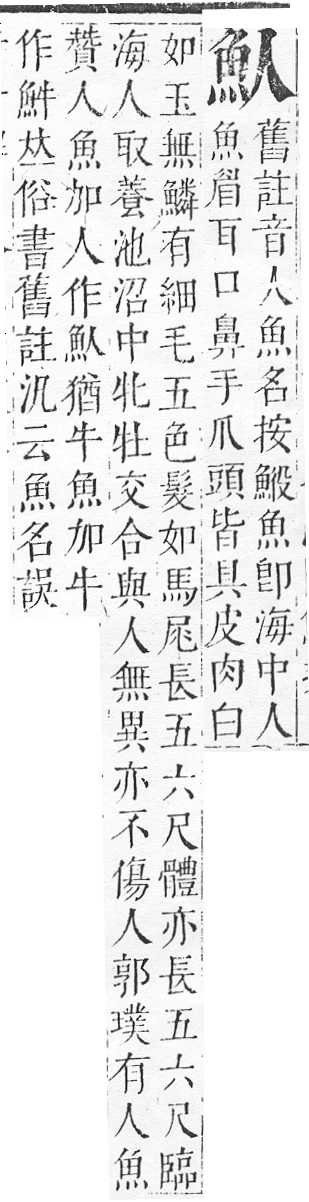 魜
舊註音人魚名按䱱魚卽海中人
魚眉耳口鼻手爪頭皆具皮肉白
如玉無鱗有細毛五色髮如馬尾長五六尺體亦長五六尺臨
海人取養池沼中牝牡交合與人無異亦不傷人郭璞有人魚
贊人魚加人作魜猶牛魚加牛
作䱁𠀤俗書舊註汎云魚名誤